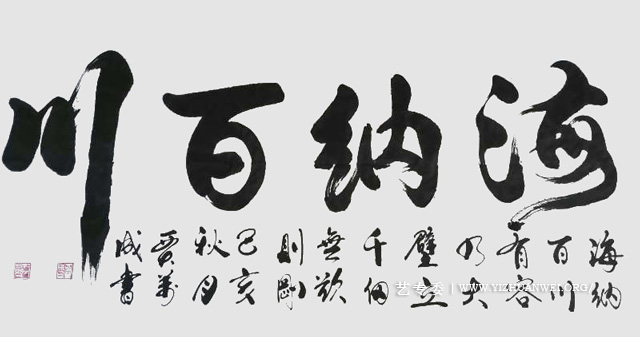 海納百川
海納
百川
有容
乃大
壁立
千仞
無欲
則剛
己亥
秋月
賈萬
成書
艺专委 | WWW.YIZHUANWEI.ORG